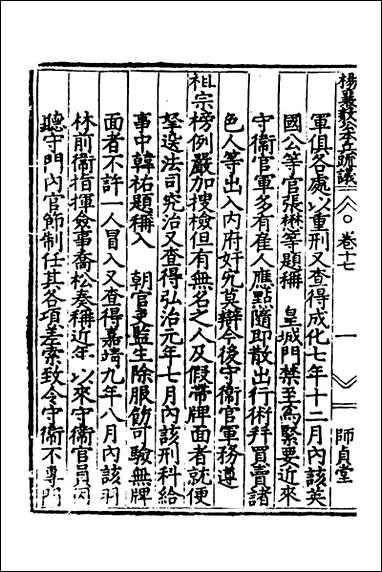 楊襄毅公本兵疏議 卷十七 一 師貞堂
軍俱各處以重刑又查得成化七年十二月內該英
國公等官張懋等題稱 皇城門禁至為緊要近來
守衛官軍多有雇人應點隨即散出行術拜買賣諸
色人等出入內府奸宄莫辯今後守衛官軍務遵
祖宗榜例嚴加搜檢但有無名之人及假帶牌面者就便
拏送法司究治又查得弘治元年七月內該刑科給
事中韓祐題稱入 朝官吏監生除服飭可驗無牌
面者不許一人冒入又查得嘉靖九年八月內該羽
林前衛指揮僉事喬松奏稱近年以來守衛官員因
聽守門內官節制任其各項差索致令守衛不專門